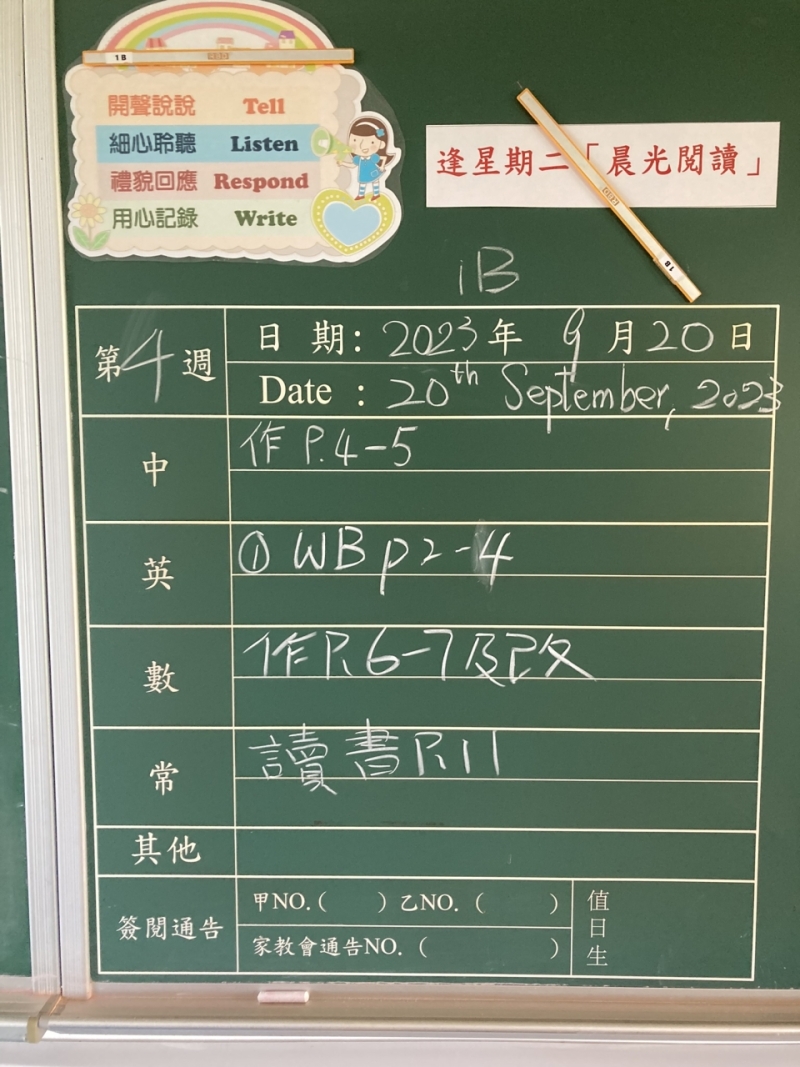 1B
開聲說說 Tell
細心聆聽 Listen
禮貌回應 Respond
用心記錄 Write
逢星期二「晨光閱讀」
1B
1B
第4週
日 期: 2023年 9月20日
Date : 20th September, 2023
中
作 P.4-5
英
① WB p2-4
數
作P.6-7及改
常
讀書P.11
其他
簽閱通告
甲NO.( ) 乙NO. ( )
家教會通告NO. ( )
值日生